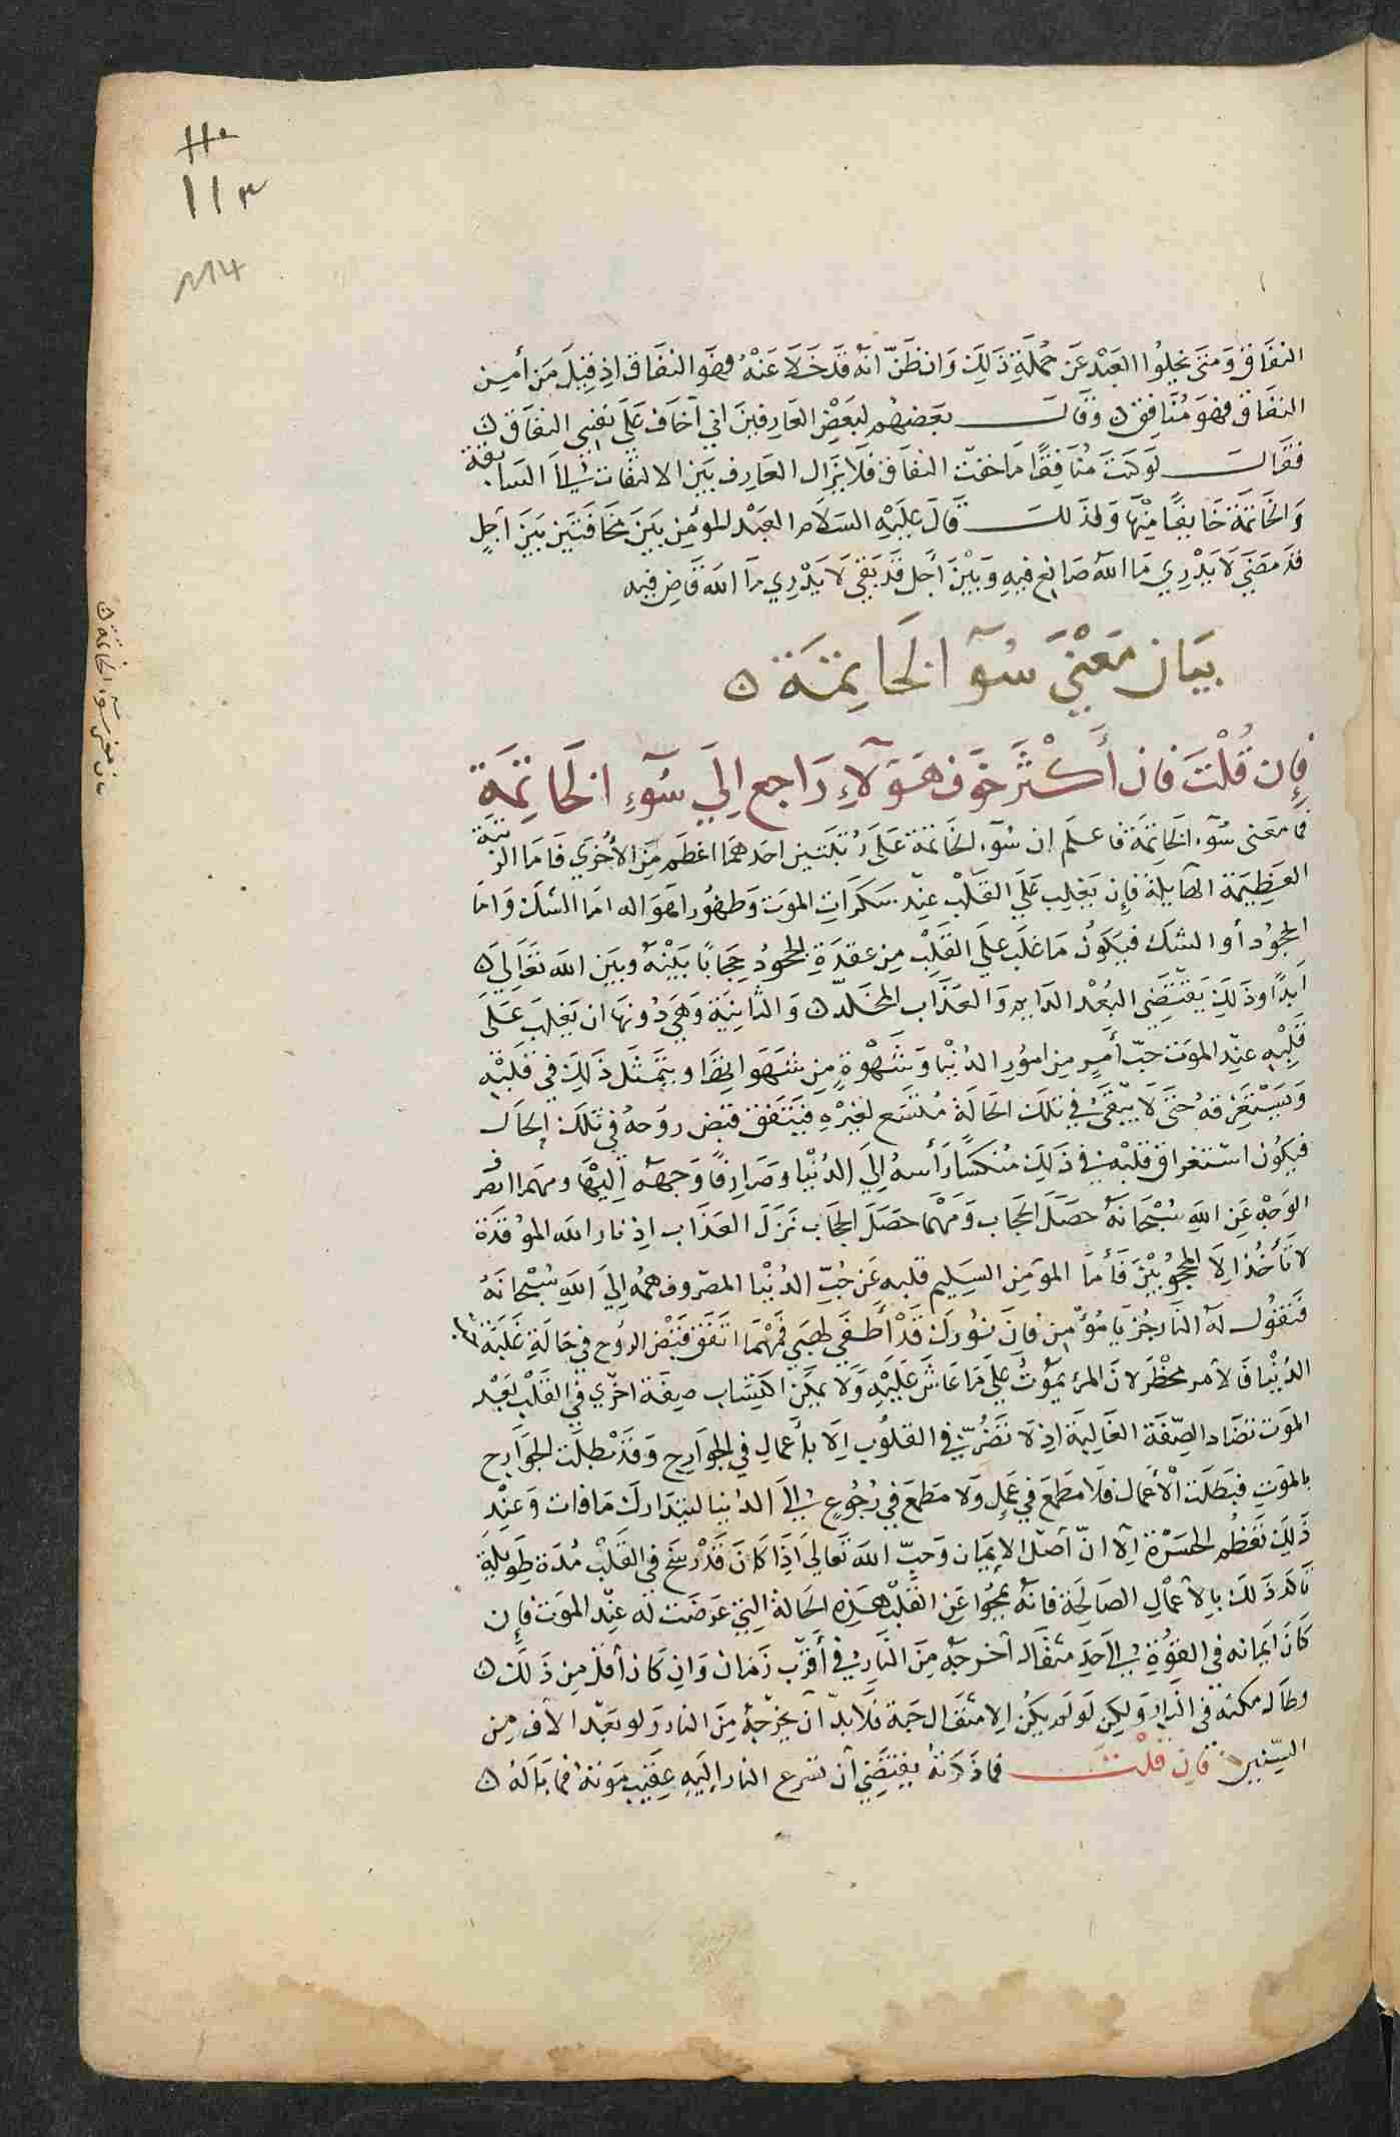 ١١٠
١١٣
١١٤
النفاق ومتى يخلوا العبد عن جملة ذلك وان ظن انه قد خلا عنه فهو النفاق اذ قيل من أمن
النفاق فهو منافق ن وقال بعضهم لبعض العارفين اني أخاف على نفسي النفاق ن
فقال لو كنت منافقا ما خفت النفاق فلا يزال العارف بين الالتفات إلى السابقة
والخاتمة خايفا منها ولذلك قال عليه السلام العبد المؤمن بين مخافتين بين أجل
قد مضى لا يدري ما الله صانع فيه وبين أجل قد بقي لا يدري ما الله قاض فيه
بيان معنى سوء الخاتمة ن
بيان معنى سوء الخاتمة ن
فإن قلت فان أكثر خوف هؤلاء راجع إلى سوء الخاتمة
فما معنى سوء الخاتمة فاعلم ان سوء الخاتمة على رتبتين احدهما اعظم من الأخرى فاما الرتبة
العظيمة الهايلة فإن يغلب على القلب عند سكرات الموت وظهور اهواله اما الشك واما
الجحود أو الشك فيكون ما غلب على القلب من عقدة الجحود حجابا بينه وبين الله تعالى ن
أبدا وذلك يقتضي البعد الدايم والعذاب المخلد ن والثانية وهي دونها ان يغلب على
قلبه عند الموت حب أمر من امور الدنيا وشهوة من شهواتها ويتمثل ذلك في قلبه
ويستغرقه حتى لا يبقى في تلك الحالة متسع لغيره فيتفق قبض روحه في تلك الحال
فيكون استغراق قلبه في ذلك منكسا رأسه إلى الدنيا وصارفا وجهه إليها ومهما انصرف
الوجه عن الله سبحانه حصل الحجاب ومهما حصل الحجاب نزل العذاب اذ نار الله الموقدة
لا تأخذ إلا المحجوبين فأما المؤمن السليم قلبه عن حب الدنيا المصروف همه إلى الله سبحانه
فتقول له النار جز يا مؤمن فان نورك قد أطفى لهبي فمهما اتفق قبض الروح في حالة غلبة
الدنيا فالأمر مخطر لان المرء يموت على ما عاش عليه ولا يمكن اكتساب صفة اخرى في القلب بعد
الموت تضاد الصفة الغالبة اذ لا تصرف في القلوب إلا بأعمال في الجوارح وقد بطلت الجوارح
بالموت فبطلت الأعمال فلا مطمع في عمل ولا مطمع في رجوع إلى الدنيا ليتدارك ما فات وعند
ذلك تعظم الحسرة إلا ان أصل الإيمان وحب الله تعالى إذا كان قد رسخ في القلب مدة طويلة
تأكد ذلك بالأعمال الصالحة فانه يمحوا عن القلب هذه الحالة التي عرضت له عند الموت فإن
كان ايمانه في القوة إلى حد مثقال أخرجه من النار في أقرب زمان وان كان أقل من ذلك ن
وطال مكثه في النار ولكن لو لم يكن إلا مثقال حبة فلا بد أن يخرجه من النار ولو بعد آلاف من
السنين فان قلت فما ذكرته يقتضي أن تسرع النار إليه عقيب موته فما باله ن